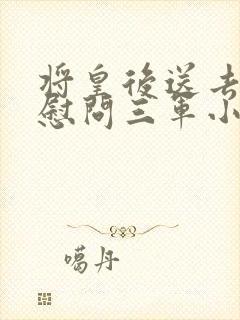 将皇後送去
慰問三軍小
噶丹